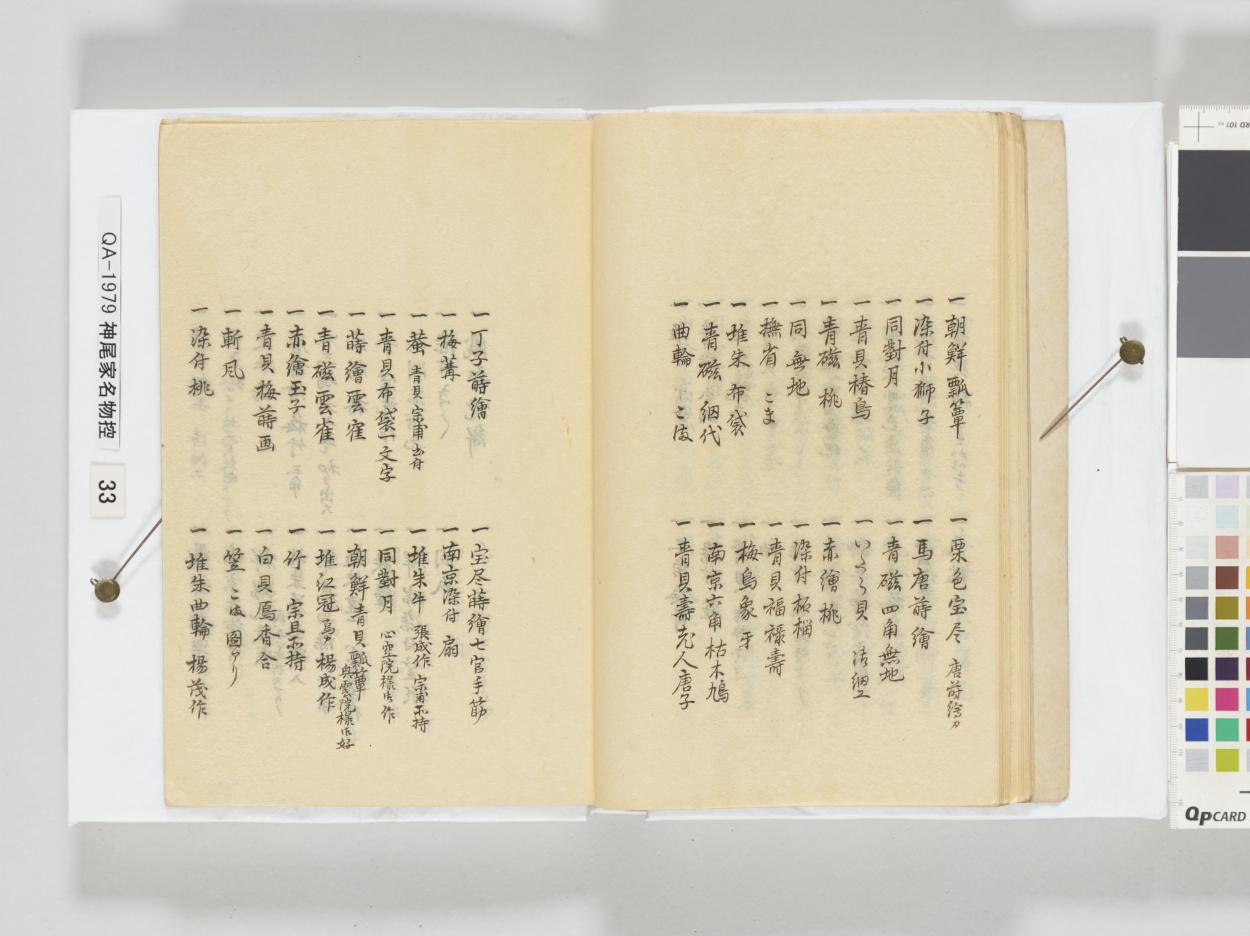 一 朝鮮 瓢箪
一 染付小獅子
一 同對月
一 青貝椿鳥
一 青磁 桃
一 同 無地
一 撫省 こま
一 堆朱 布袋
一 青磁 網代
一 曲輪 こま
一 栗色宝尽 唐蒔繪カ
一 馬唐蒔繪
一 青磁 四角無地
一 いらら貝 清細工
一 赤繪 桃
一 染付 柘榴
一 青貝 福禄壽
一 梅鳥象牙
一 南京六角 枯木鳩
一 青貝壽老人唐子
一 丁子蒔繪
一 梅
一 青貝 宗甫書付
一 青貝布袋一文字
一 蒔繪雲雀
一 青磁雲雀
一 赤繪玉子
一 青貝 梅蒔画
一 斬凡
一 染付 桃
一 宝尽蒔繪七官手筋
一 南京染付 扇
一 堆朱牛 張成作 宗甫所持
一 同對月 心空院様御作
一 朝鮮青貝瓢箪 與雲院様御好
一 堆江冠 馬カ 楊成作
一 竹 宗且所持
一 白貝鳫香合
一 笠 こま 図アリ
一 堆朱曲輪 楊茂作
QA-1979 神尾家名物控
33
QPCARD